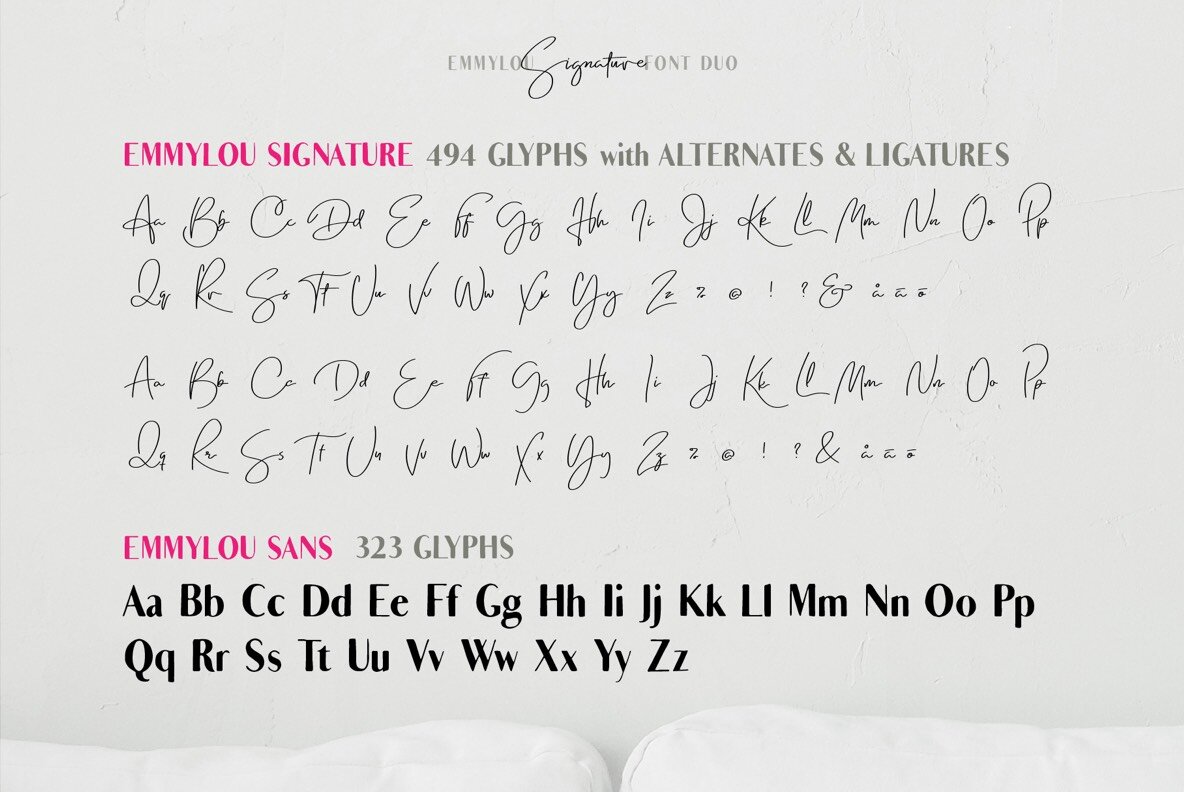 EMMYLOU Signature FONT DUO
EMMYLOU SIGNATURE 494 GLYPHS with ALTERNATES & LIGATURES
Aa Bb Cc Dd Ee Ff Gg Hh Ii Jj Kk Ll Mm Nn Oo Pp
Qq Rr Ss Tt Uu Vv Ww Xx Yy Zz % © ! ? & å ā õ
Aa Bb Cc Dd Ee Ff Gg Hh Ii Jj Kk Ll Mm Nn Oo Pp
Qq Rr Ss Tt Uu Vv Ww Xx Yy Zz % © ! ? & å ā õ
EMMYLOU SANS 323 GLYPHS
Aa Bb Cc Dd Ee Ff Gg Hh Ii Jj Kk Ll Mm Nn Oo Pp
Qq Rr Ss Tt Uu Vv Ww Xx Yy Zz